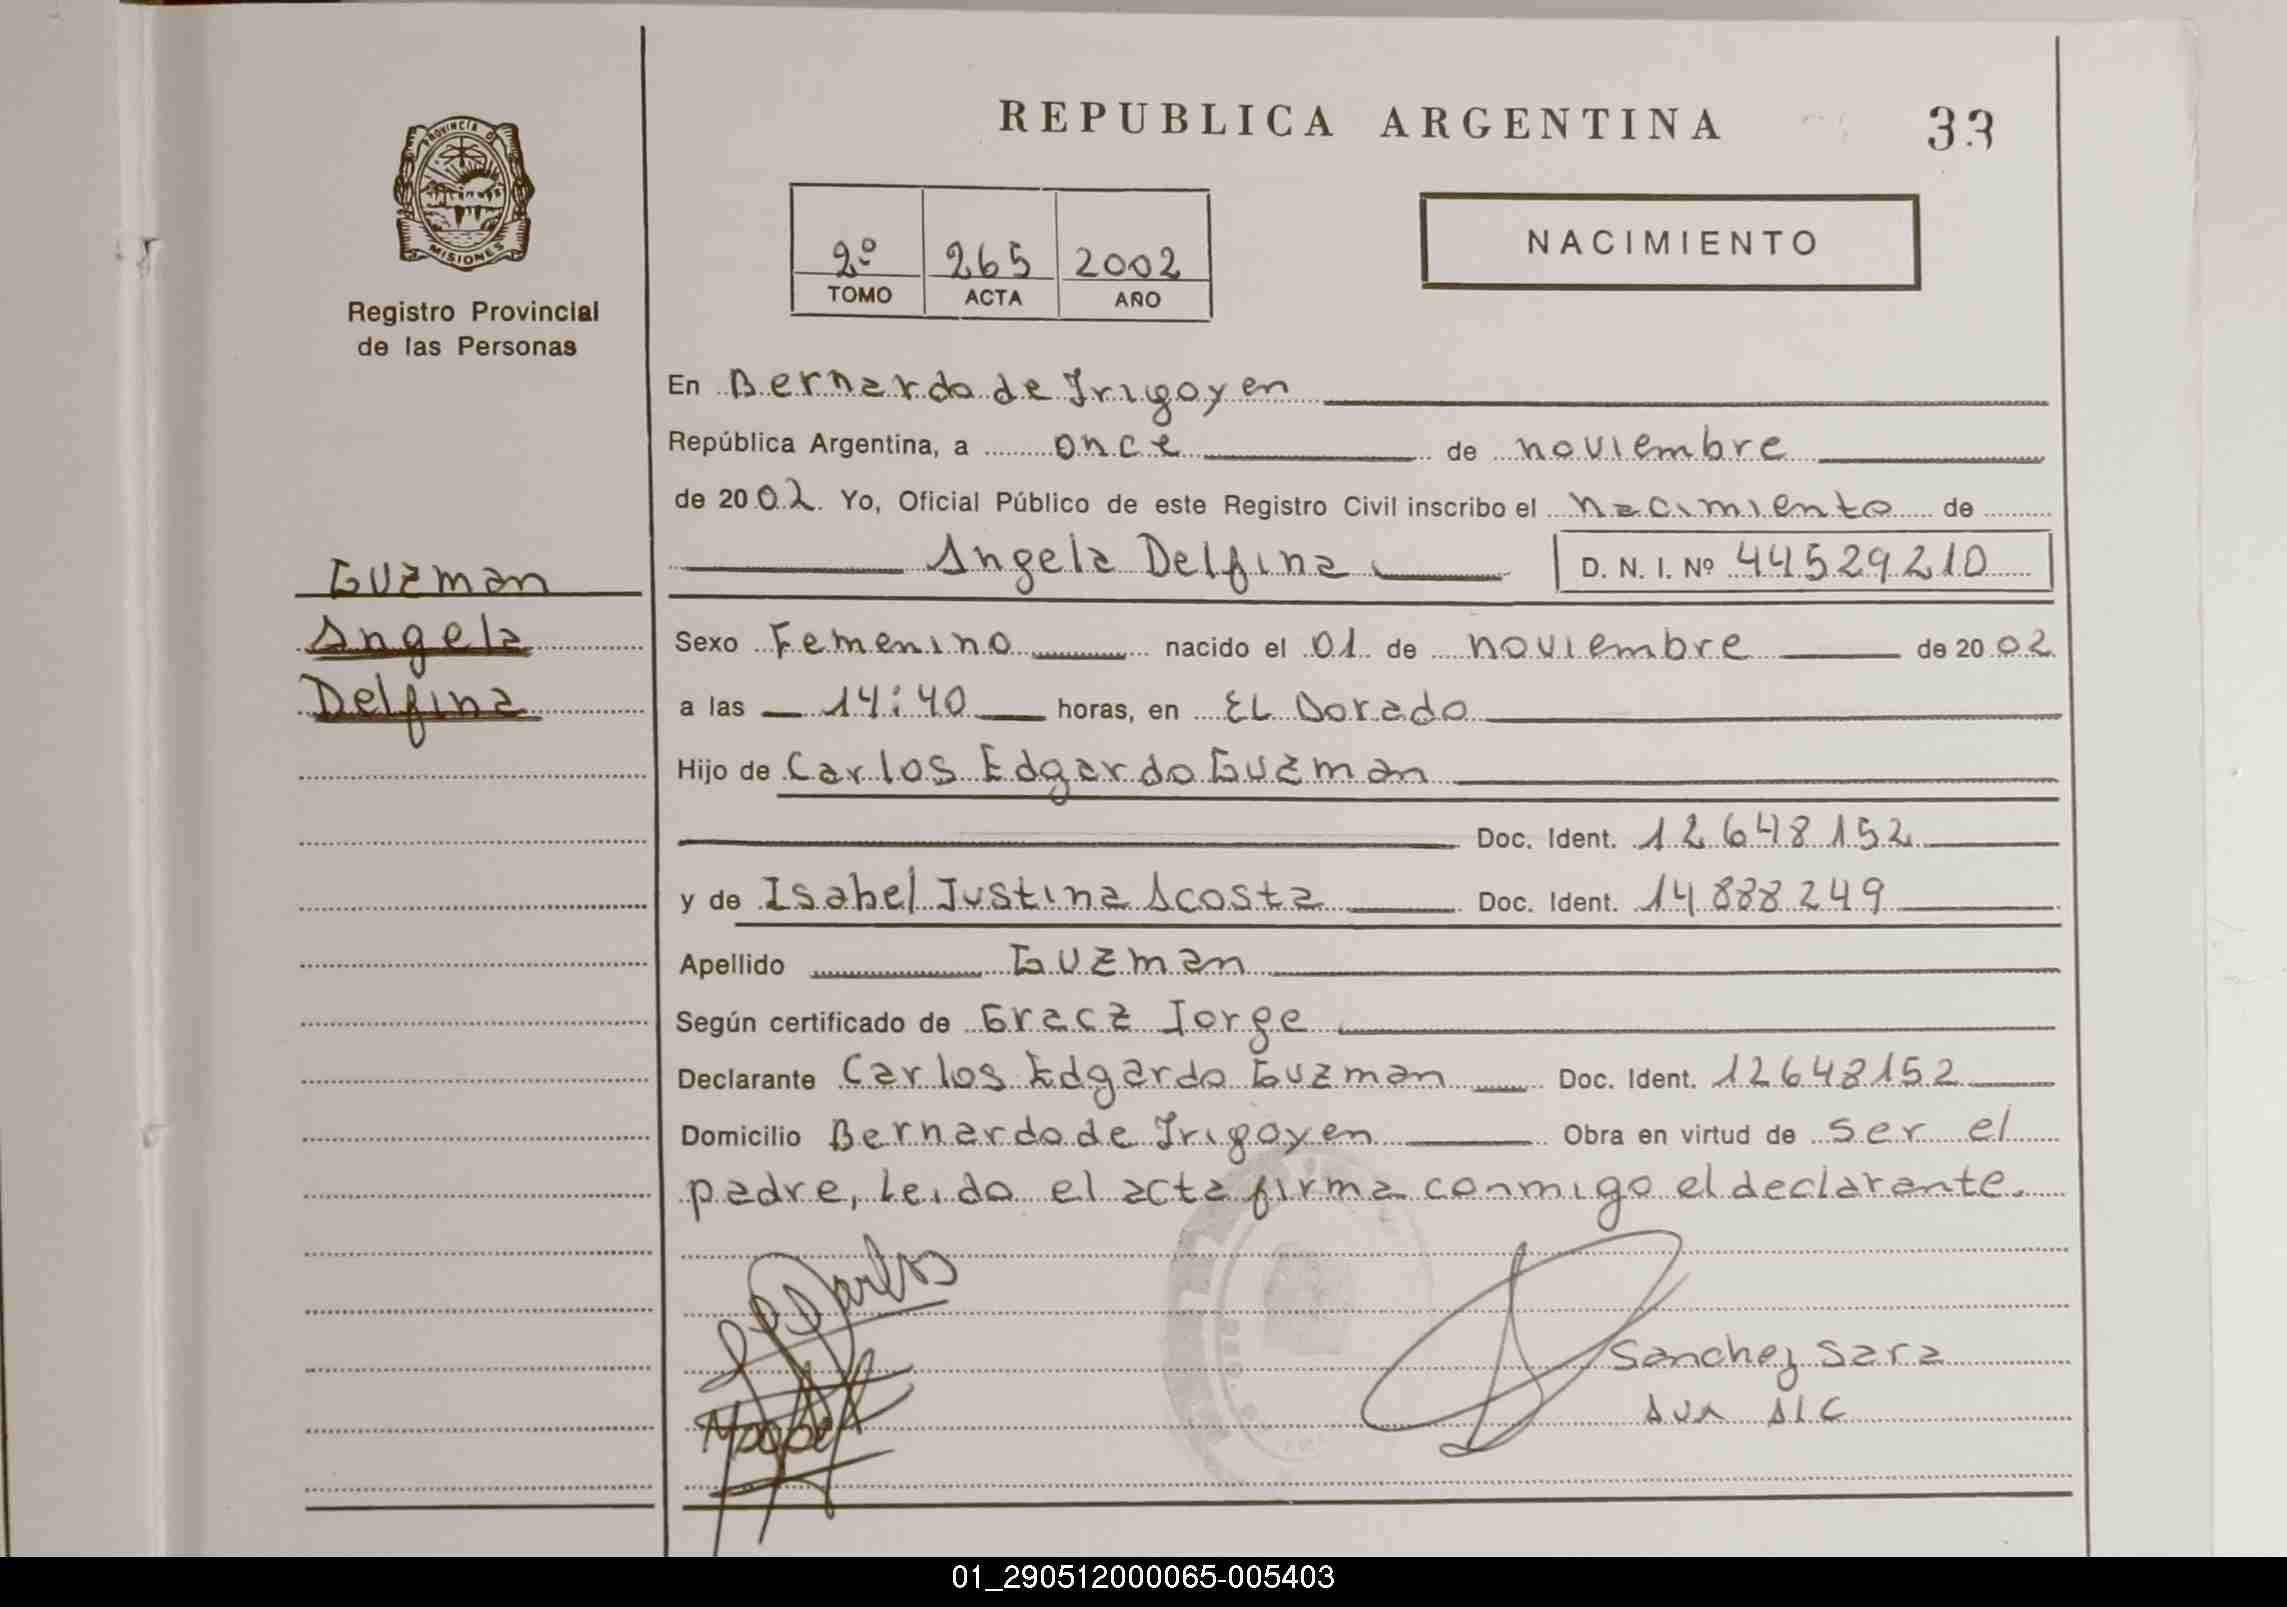 REPUBLICA ARGENTINA
33
PROVINCIA D
MISIONES
Registro Provincial
de las Personas
2º 265 2002
TOMO ACTA AÑO
NACIMIENTO
En Bernardo de Irigoyen
República Argentina, a once de noviembre
de 2002. Yo, Oficial Público de este Registro Civil inscribo el nacimiento de
Angela Delfina D. N. I. Nº 44529210
Guzman
Angela
Delfina
Sexo Femenino nacido el 01 de noviembre de 2002
a las 14:40 horas, en EL Dorado
Hijo de Carlos Edgardo Guzman
Doc. Ident. 12648152
y de Isabel Justina Acosta Doc. Ident. 14888249
Apellido Guzman
Según certificado de Jorge
Declarante Carlos Edgardo Guzman Doc. Ident. 12648152
Domicilio Bernardo de Irigoyen Obra en virtud de ser el
padre, Leido el acta firma conmigo el declarante.
Sanchez Sara
01_290512000065-005403